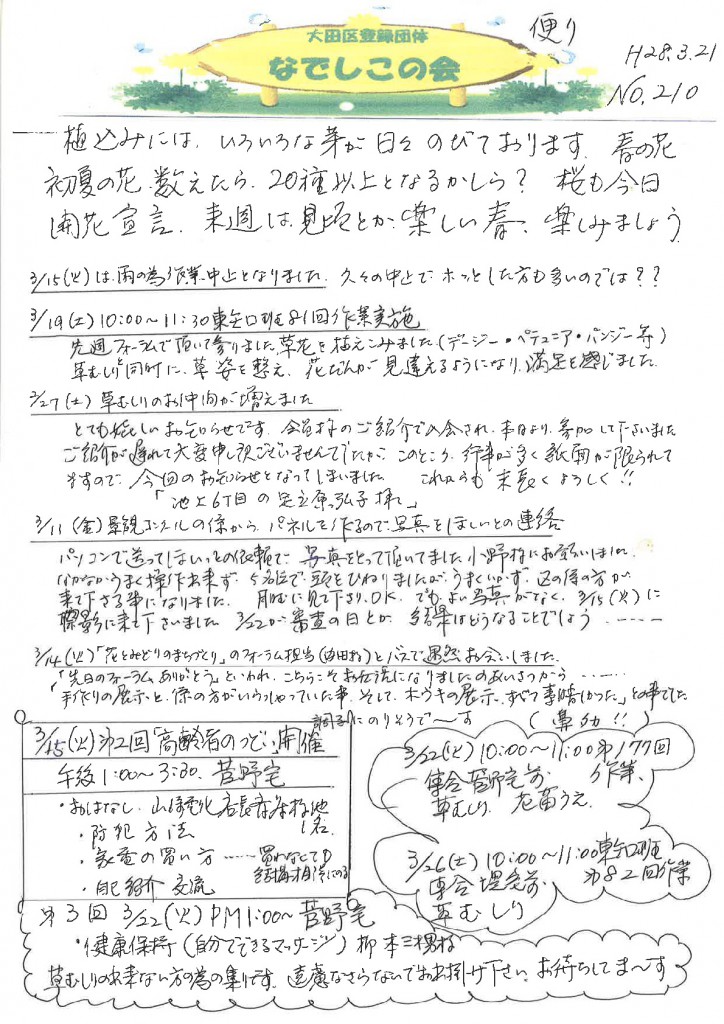 大田区登録団体
なでしこの会
便り
H28.3.21
NO.210
植込みには、いろいろな芽が日々のびております。春の花
初夏の花、数えたら、20種以上となるかしら? 桜も今日
開花宣言、来週は見頃とか、楽しい春、楽しみましょう
3/15(火)は雨の為作業中止となりました。久々の中止でホッとした方も多いのでは??
3/19(土)10:00~11:30東矢口班81回作業実施
先週フォーラムで頂いて参りました、草花を植えこみました(デージー・ペチュニア・パンジー等)
草むしりと同時に、草姿を整え、花だんが見違えるようになり、満足を感じました。
2/27(土)草むしりのお仲間が増えました
とても嬉しいお知らせです。会員様のご紹介で入会され、本日より、参加して下さいました
ご紹介が遅れて大変申し訳ございませんでしたが、このところ、行事が多く紙面が限られて
ますので、今回のお知らせとなってしまいました これからも末長くよろしく!!
「池上6丁目の足立原弘子様」
3/11(金)景観コンクールの係から、パネルを作るので写真をほしいとの連絡
パソコンで送ってほしいとの依頼で、写真をとって頂いてました小野様にお願いしました。
なかなかうまく操作出来ず、5名位で頭をひねりましたが、うまくいかず、区の係の方が
来て下さる事になりました。 見て下さり、OK、でもよい写真がなく、3/15(火)に
撮影に来て下さいました 3/22が審査の日とか、結果はどうなることでしょう ------
3/14(火)「花とみどりのまちづくり」のフォーラム担当( 様)とバスで偶然お会いしました。
「先日のフォーラムありがとう」といわれ、こちらこそお世話になりましたのあいさつから、------
「手作りの展示」と、係の方がいらっしゃっていた事、そして、ホウキの展示、すべて素晴しかった」との事でした
調子にのりそうで〜す ( !!)
3/15(火)第2回「高齢者のつどい」開催
午後1:00~3:30、菅野宅
・おはなし 山﨑電化 店長 1名
・防犯方法
・家電の買い方 ------ 買わなくても結構相談にのる
・自己紹介 交流
3/22(火)10:00~11:00第177回
集合菅野宅前 作業、
草むしり、花苗うえ
3/26(土)10:00~11:00東矢口班
集合堤宅前 第82回作業
草むしり
第3回 3/22(火)PM1:00~菅野宅
・健康保持(自分でできるマッサージ)柳本 様
草むしりの出来ない方の為の集りです。遠慮なさらないでお出掛け下さい。お待ちしてま〜す